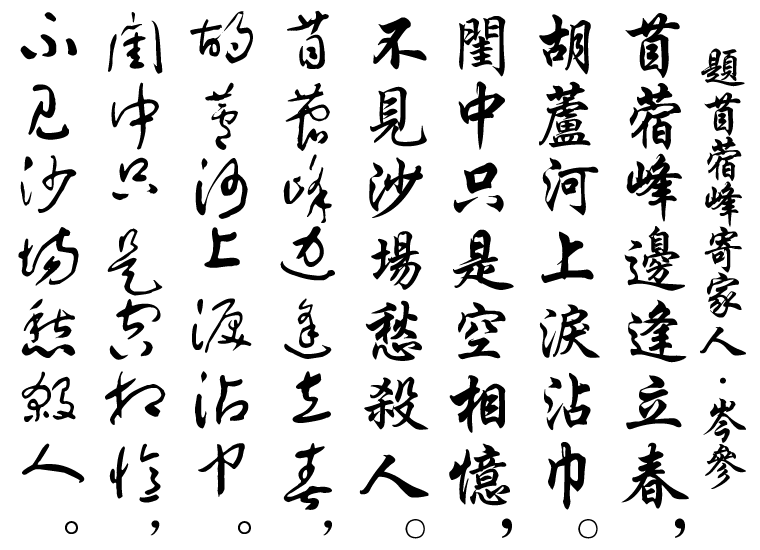 題苜蓿峰寄家人·岑參
苜蓿峰邊逢立春，
胡蘆河上淚沾巾。
閨中只是空相憶，
不見沙場愁殺人。
苜蓿峰边逢立春，
胡蘆河上淚沾巾。
閨中只是空相憶，
不見沙場愁殺人。